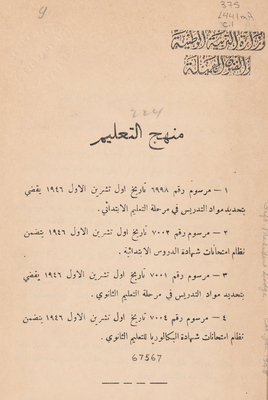 9
375
L441mA
وزارة التربية الوطنية
والفنون الجميلة
224
منهج التعليم
١ — مرسوم رقم ٦٩٩٨ تاريخ اول تشرين الاول ١٩٤٦ يقضي
بتحديد مواد التدريس في مرحلة التعليم الابتدائي .
٢ — مرسوم رقم ٧٠٠٢ تاريخ اول تشرين الاول ١٩٤٦ يتضمن
نظام امتحانات شهادة الدروس الابتدائية .
٣ — مرسوم رقم ٧٠٠١ تاريخ اول تشرين الاول ١٩٤٦ يقضي
بتحديد مواد التدريس في مرحلة التعليم الثانوي .
٤ — مرسوم رقم ٧٠٠٤ تاريخ اول تشرين الاول ١٩٤٦ يتضمن
نظام امتحانات شهادة البكالوريا للتعليم الثانوي .
67567